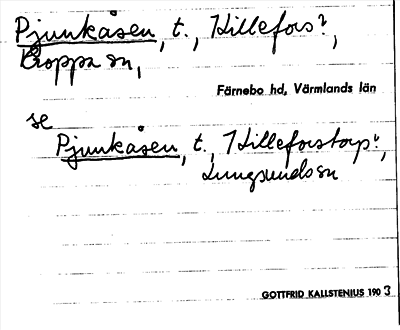 Pjunkåsen, t., Hillefors?,
Kroppa sn,
Färnebo hd, Värmlands län
se
Pjunkåsen, t., Hilleforstorp",
Lungsunds sn
GOTTFRID KALLSTENIUS 1903